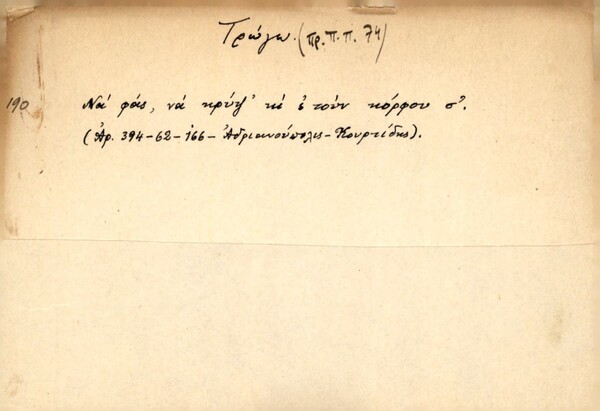 Τρώγω. (πρ. π. π. 74)
190 Νά φάς, νά κρύψ' κὶ 'ς τοὺν κόρφου σ'.
(Ἀρ. 394-62-166-Ἀδριανούπολις-Κουρτίδης).